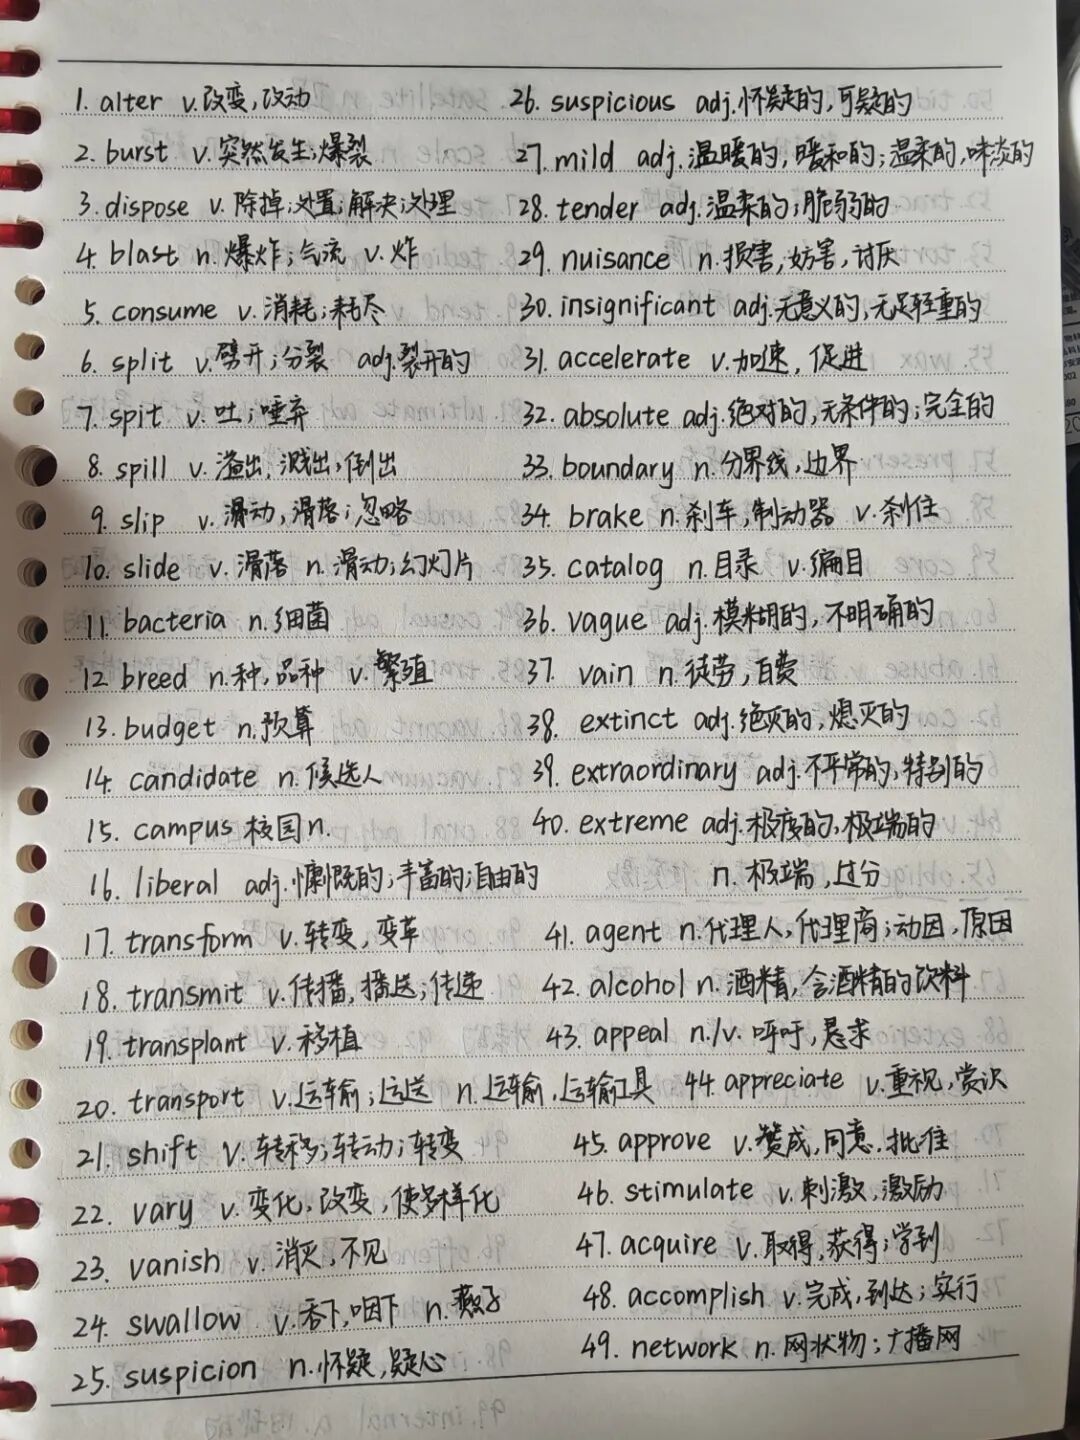 1. alter v.改变,改动
2. burst v.突然发生;爆裂
3. dispose v.除掉;处置;解决;处理
4. blast n.爆炸;气流 v.炸
5. consume v.消耗;耗尽
6. split v.劈开;分裂 adj.裂开的
7. spit v.吐;唾弃
8. spill v.溢出,溅出,倒出
9. slip v.滑动,滑落;忽略
10. slide v.滑落 n.滑动;幻灯片
11. bacteria n.细菌
12 breed n.种,品种 v.繁殖
13. budget n.预算
14. candidate n.候选人
15. campus 校园n.
16. liberal adj.慷慨的;丰富的;自由的
17. transform v.转变,变革
18. transmit v.传播,播送;传递
19. transplant v.移植
20. transport v.运输;运送 n.运输,运输工具
21. shift v.转移;转动;转变
22. vary v.变化,改变,使多样化
23. vanish v.消灭,不见
24. swallow v.吞下,咽下 n.燕子
25. suspicion n.怀疑,疑心
26. suspicious adj.怀疑的,可疑的
27. mild adj.温暖的,暖和的;温柔的,味淡的
28. tender adj.温柔的;脆弱的
29. nuisance n.损害,妨害,讨厌
30. insignificant adj.无意义的,无足轻重的
31. accelerate v.加速,促进
32. absolute adj.绝对的,无条件的;完全的
33. boundary n.分界线,边界
34. brake n.刹车,制动器 v.刹住
35. catalog n.目录 v.编目
36. vague adj.模糊的,不明确的
37. vain n.徒劳,白费
38. extinct adj.绝灭的,熄灭的
39. extraordinary adj.不平常的,特别的
40. extreme adj.极度的,极端的
n.极端,过分
41. agent n.代理人,代理商;动因,原因
42. alcohol n.酒精,含酒精的饮料
43. appeal n./v.呼吁,恳求
44 appreciate v.重视,赏识
45. approve v.赞成,同意,批准
46. stimulate v.刺激,激励
47. acquire v.取得,获得;学到
48. accomplish v.完成,到达;实行
49. network n.网状物;广播网